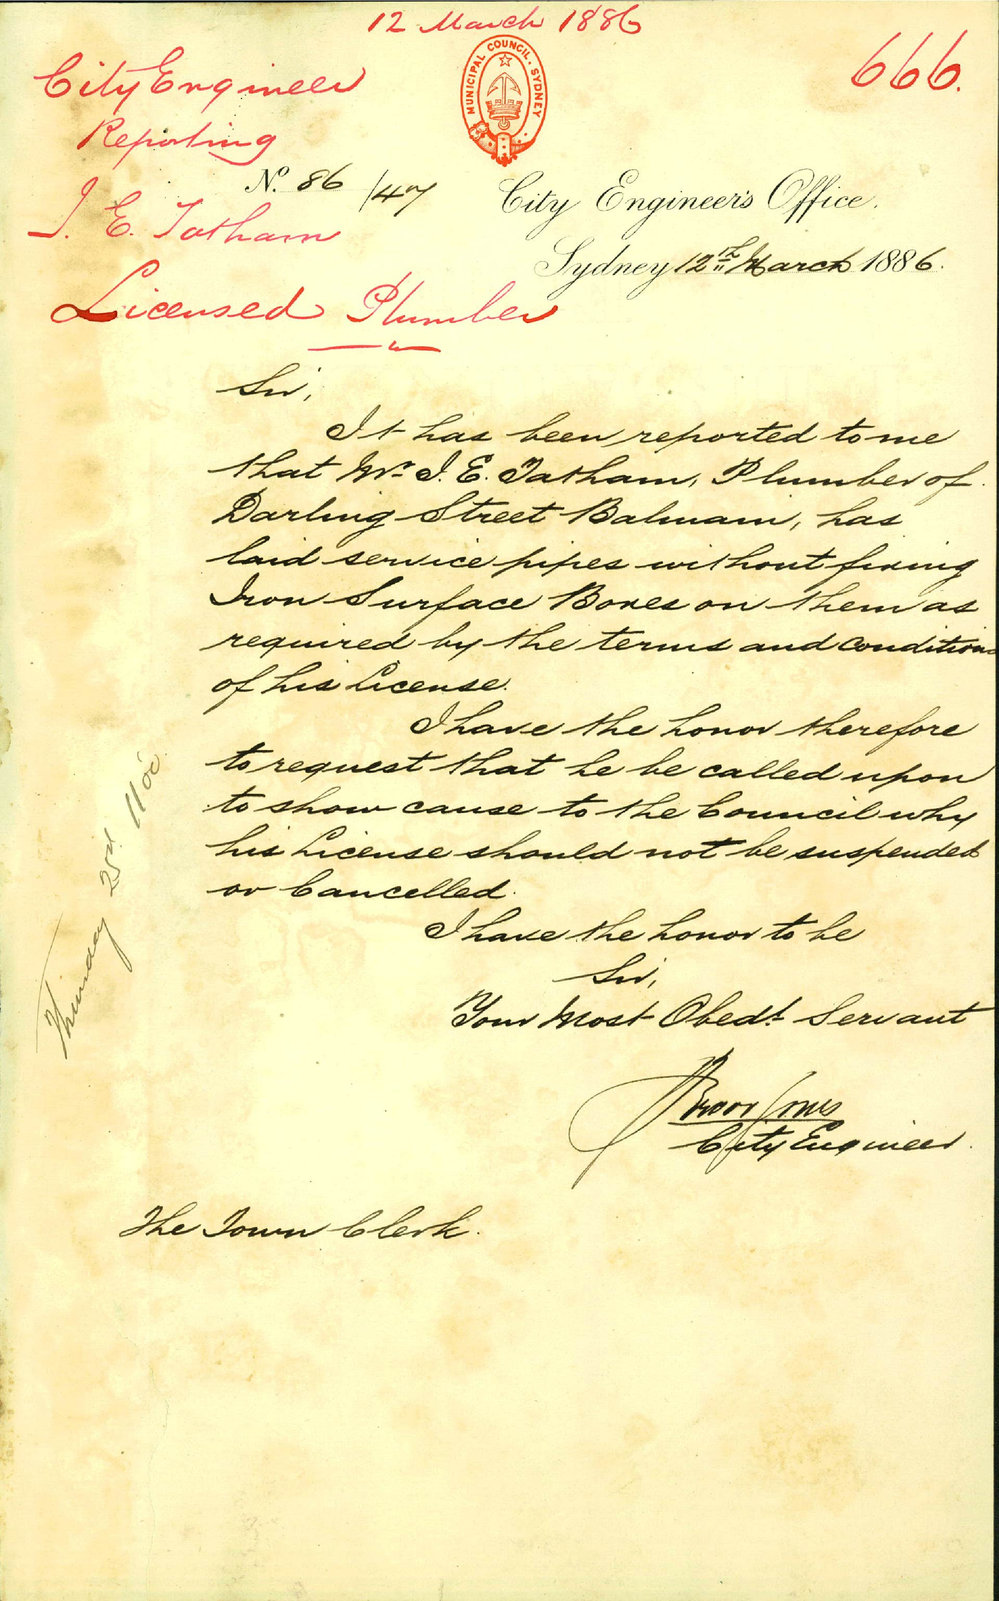 12 March 1886
666.
City Engineer
Reporting
J. E. Tatham
Licensed Plumber
MUNICIPAL COUNCIL. SYDNEY
No. 86/47
City Engineer's Office.
Sydney 12th March 1886.
Sir,
It has been reported to me
that Mr. J. E. Tatham, Plumber of
Darling Street Balmain, has
laid service pipes without fixing
Iron Surface Boxes on them as
required by the terms and conditions
of his License.
I have the honor therefore
to request that he be called upon
to show cause to the Council why
his License should not be suspended
or Cancelled.
I have the honor to be
Sir,
Your Most Obedt. Servant
City Engineer.
The Town Clerk.
Thursday